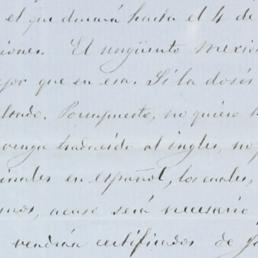 el que durará hasta el 4 de
ciones. El ungüento Mexic
jor que en esa. Si la dosis
Por supuesto, no quiero
venga traducido al ingles, no
inales en español, los cuales,
mos, acaso será necesario
vendrán certificados de